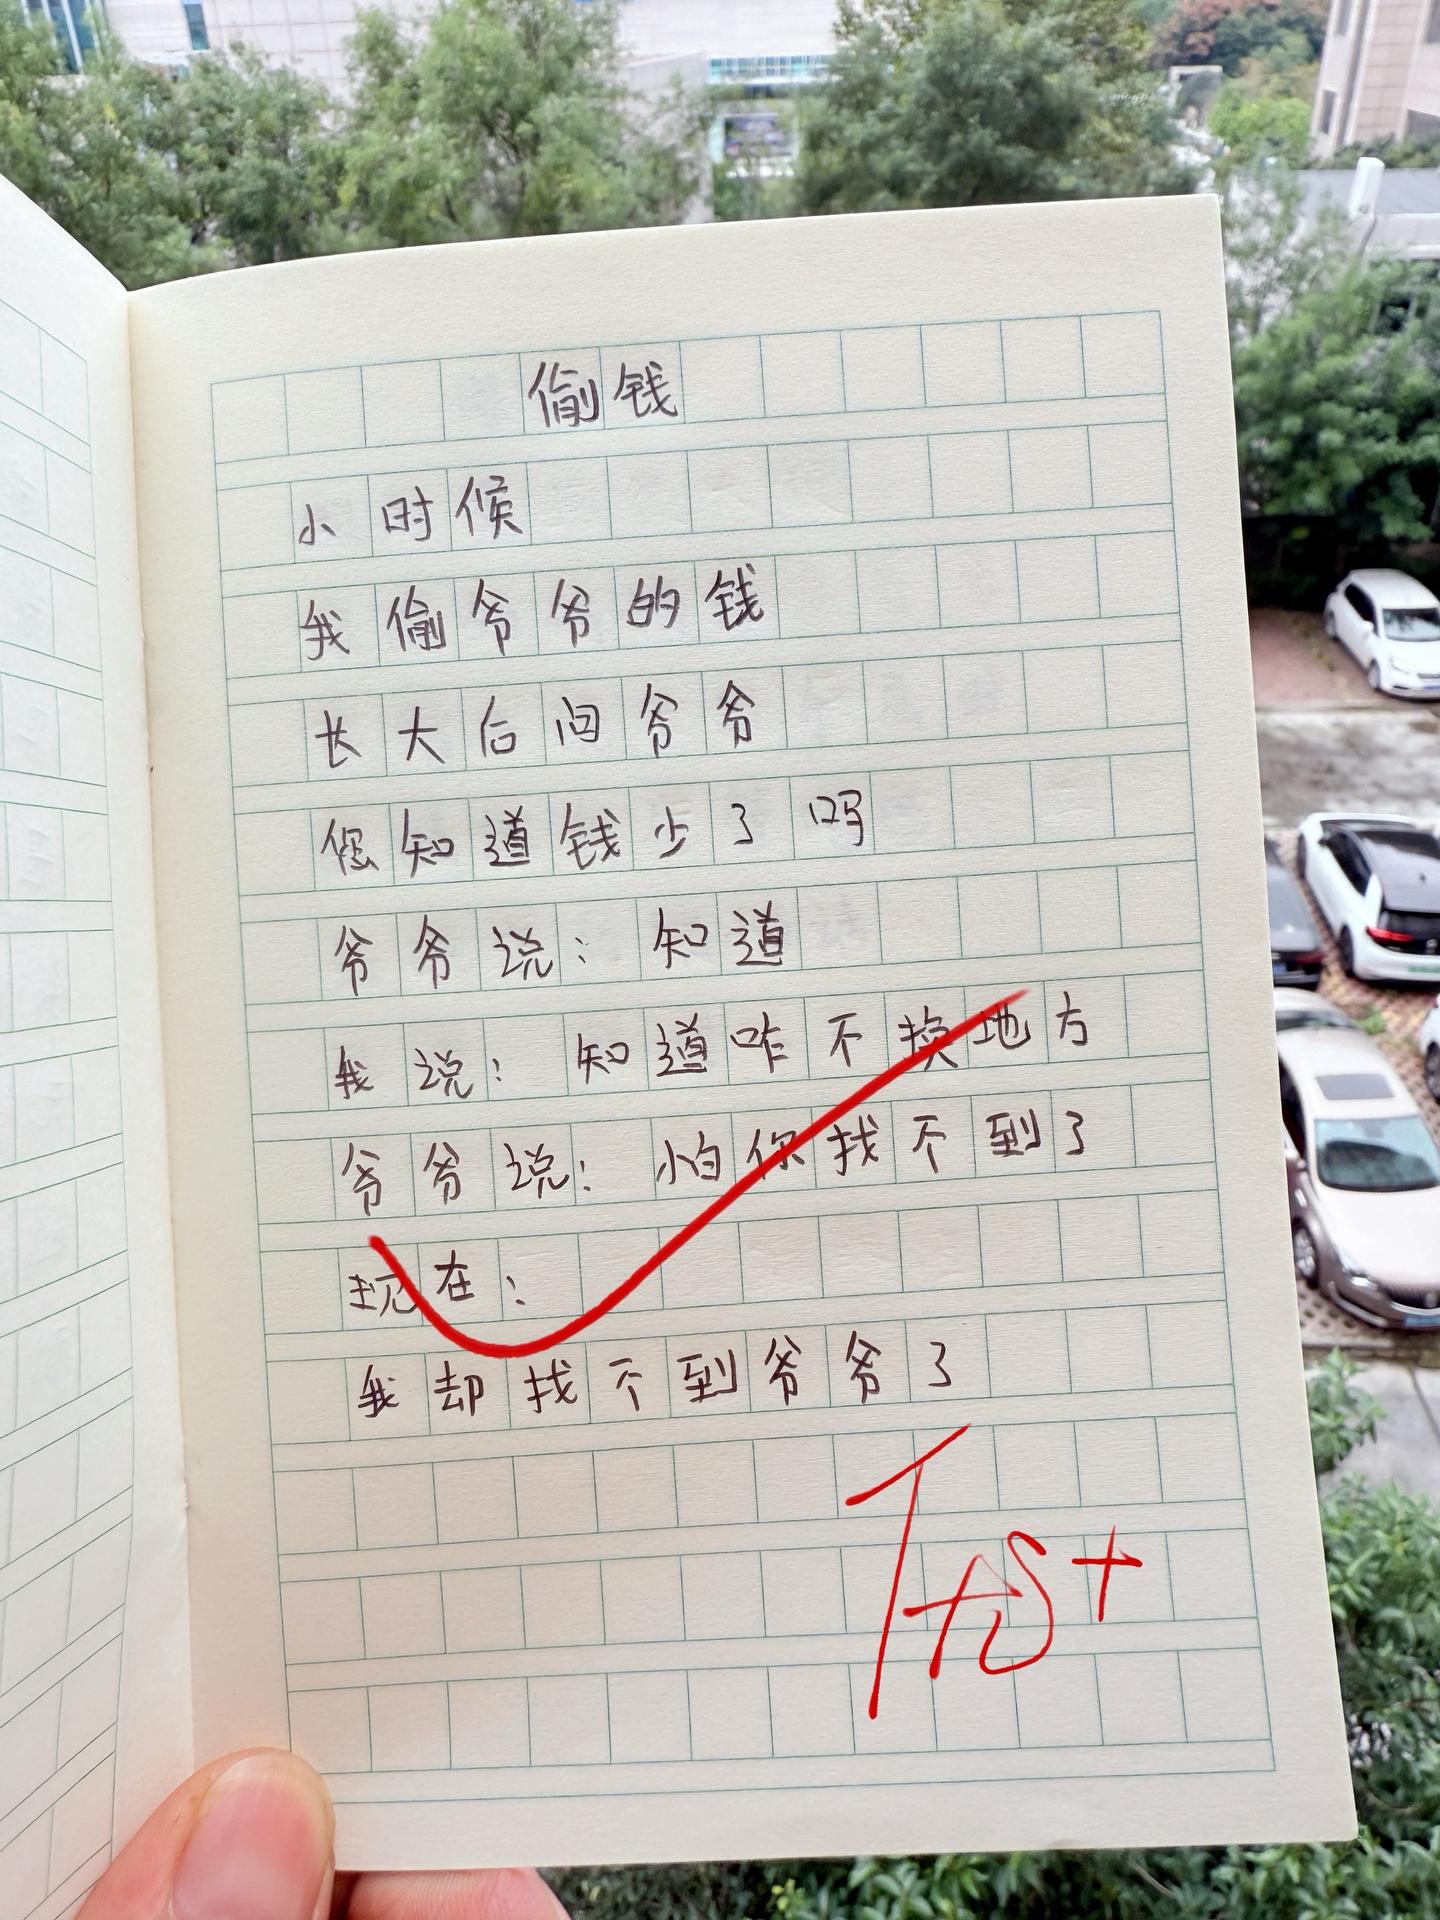 偷钱
小时候
我偷爷爷的钱
长大后问爷爷
您知道钱少了吗
爷爷说：知道
我说：知道咋不换地方
爷爷说：怕你找不到了
现在：
我却找不到爷爷了